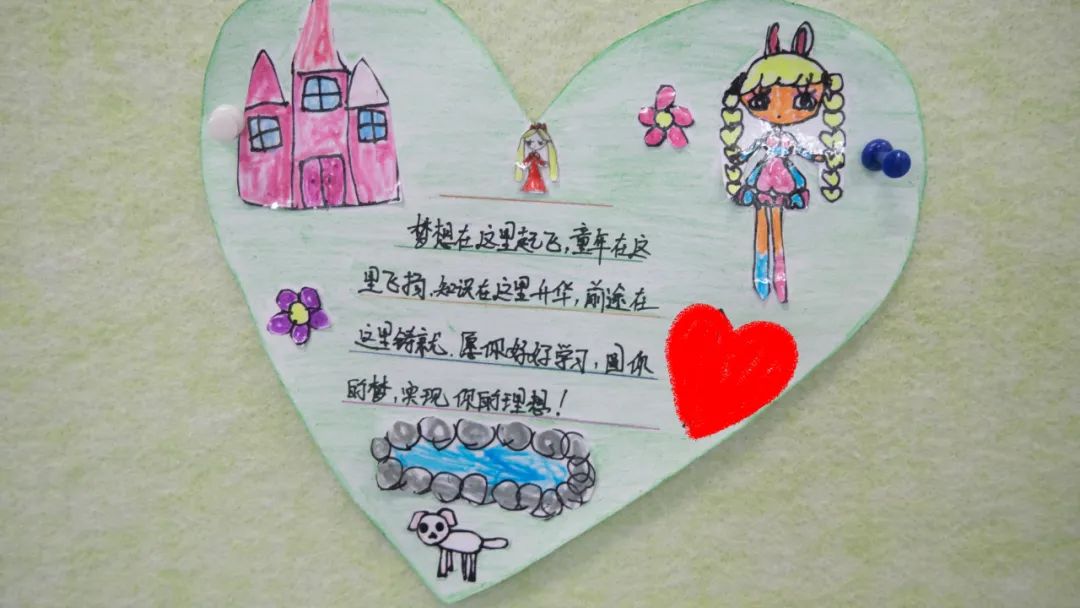 梦想在这里起飞,童年在这
里飞扬.知识在这里升华,前途在
这里铸就.愿你好好学习,圆你
的梦,实现你的理想!